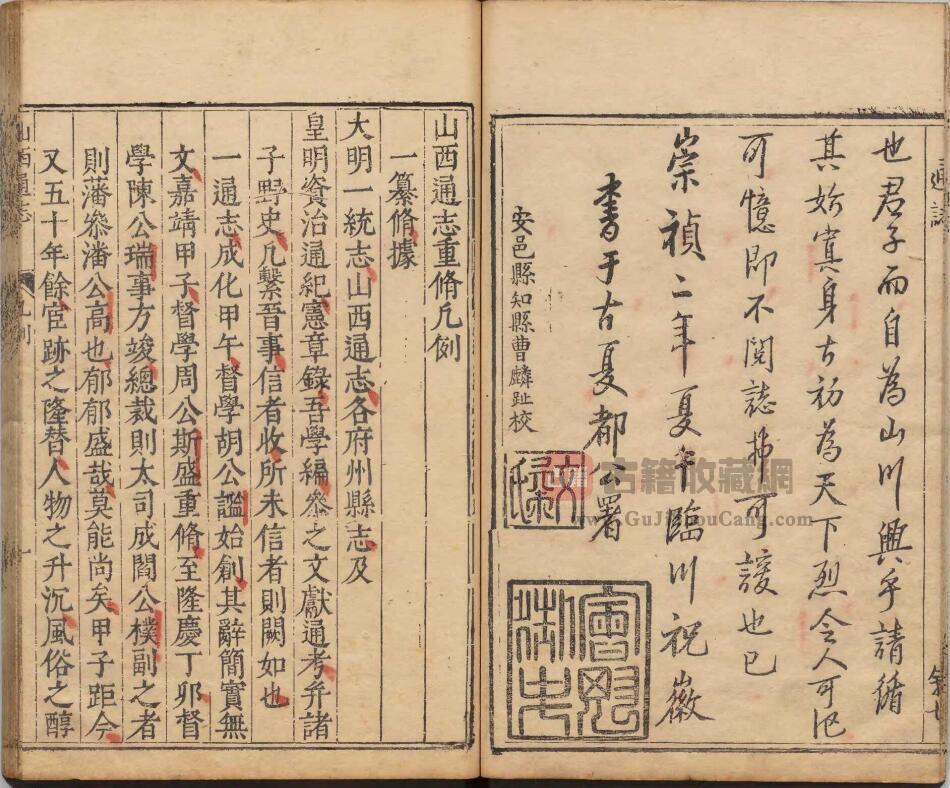 也君子而自為山川興乎請循
其
身古初為天下烈令人可
可憶即不閱誌
可諼也已
崇禎二年夏午臨川祝徽
書于古夏都公署
安邑縣知縣曹麟趾校
山西通志重脩凡例
一纂脩據
大明一統志山西通志各府州縣志及
皇明資治通紀憲章錄吾學編叅之文獻通考弁諸
子野史凡繫晉事信者收所未信者則闕如也
一通志成化甲午督學胡公謐始創其辭簡實無
文嘉靖甲子督學周公斯盛重脩至隆慶丁卯督
學陳公瑞事方竣總裁則太司成閻公樸副之者
則藩叅潘公高也郁郁盛哉莫能尚矣甲子距今
又五十年餘宦跡之隆替人物之升沉風俗之醇
山西通志
凡例
一
古籍收藏網
www.GuJiShouCang.com